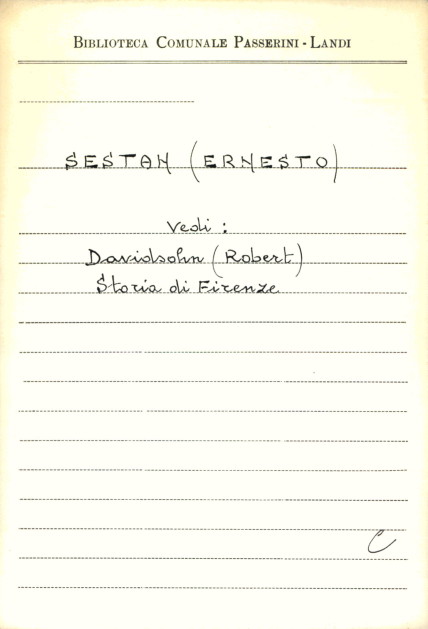 BIBLIOTECA COMUNALE PASSERINI - LANDI
SESTAN (ERNESTO)
Vedi :
Davidsohn (Robert)
Storia di Firenze
C